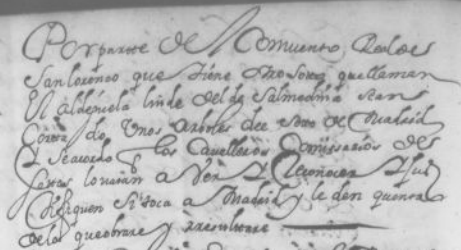 Por parte del Comvento Real de
San lorenço que tiene otro soto que llaman
El aldeguela linde del de Salmedina se an
Cortado Unos arboles del soto de Madrid
Y se acordo los Cavalleros Comissarios de
Sotos lo vaian a Ver Y Reconocer Y Jus
tifiquen si toca a Madrid y le den quenta
de lo que obrare y rresultare